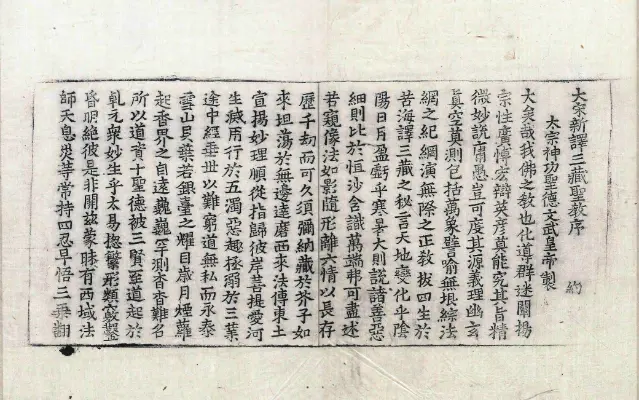 大宋新譯三藏聖教序
太宗神功聖德文武皇帝製
大矣哉我佛之教也化導群迷闡揚
宗性廣博宏辯英彥莫能究其旨精
微妙說庸愚豈可度其源義理幽玄
真空莫測包括萬象譬喻無垠綜法
網之紀綱演無際之正教拔四生於
苦海譯三藏之秘言天地變化乎陰
陽日月盈虧乎寒暑大則說諸善惡
細則比於恒沙含識萬端弗可盡述
若窺像法如影隨形離六情以長存
歷千劫而可久須彌納藏於芥子如
來坦蕩於無邊達磨西來法傳東土
宣揚妙理順從指歸彼岸菩提愛河
生滅用行於五濁惡趣拯溺於三業
途中經垂世以難窮道無私而永泰
雪山貝葉若銀臺之耀目歲月煙蘿
起香界之自遠巍巍罕測杳杳難名
所以道資十聖德被三賢至道起於
乹元眾妙生乎太易揔繁形類竅鑿
昏明絕彼是非開茲蒙昧有西域法
師天息災等常持四忍早悟三乘翻